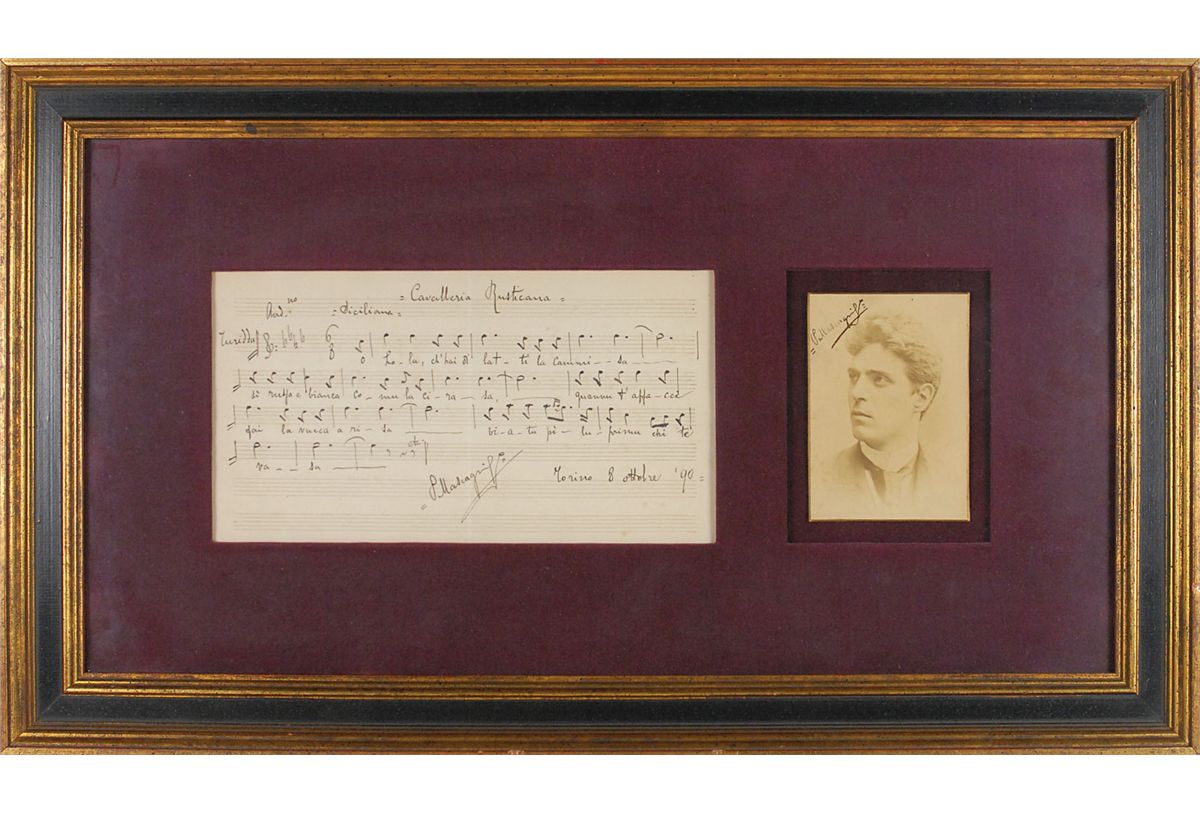 = Cavalleria Rusticana =
And.no = Siciliana =
Turiddu 6 8 O Lo-la, ch'hai di lat-ti la cammi--sa
si russa e bianca co-mu la ci-ra-sa, quannu t'affa-cci
fai la vucca a ri-sa bi-a-tu pi-lu-primu chi te
va--sa etc
= P. Mascagni = Torino 8 ottobre '90 =
= P. Mascagni =